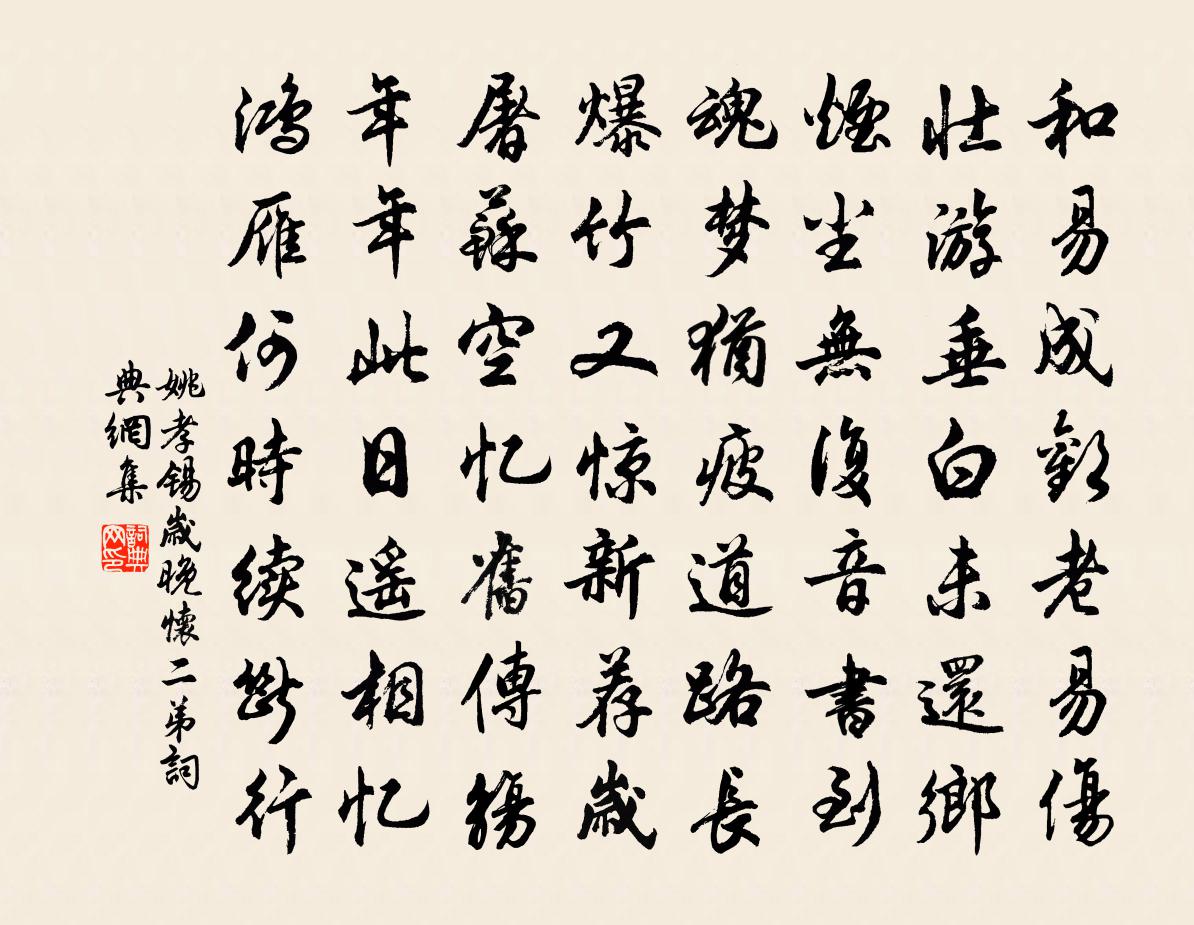 和易成歡老易傷
壯游垂白未還鄉
煙尘無復音書到
魂梦猶疲道路長
爆竹又惊新荐歲
屠蘇空忆舊傳觴
年年此日遥相忆
鴻雁何時续斷行
姚孝錫歲晚懷二弟詞
典網集
詞典
网印